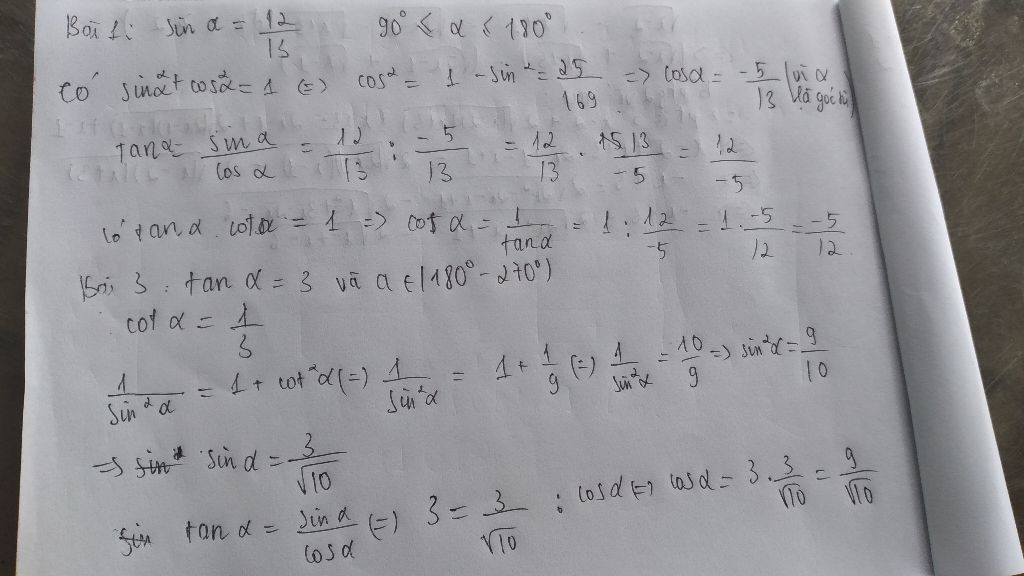 Bài 1: sin α = 12/13 90° ≤ α ≤ 180°
Có sin²α + cos²α = 1 (=) cos² = 1 - sin² = 25/169 => cosα = -5/13 (vì α là góc tù)
tanα = sin α/cos α = 12/13 : -5/13 = 12/13 . 13/-5 = 12/-5
có tan α . cot α = 1 => cot α = 1/tanα = 1 : 12/-5 = 1 . -5/12 = -5/12
Bài 3 : tan α = 3 và α ∈ (180° - 270°)
cot α = 1/3
1/sin²α = 1 + cot²α (=) 1/sin²α = 1 + 1/9 (=) 1/sin²α = 10/9 => sin²α = 9/10
=> sin α = 3/√10
tan α = sin α/cos α (=) 3 = 3/√10 : cos α (=) cos α = 3 . 3/√10 = 9/√10